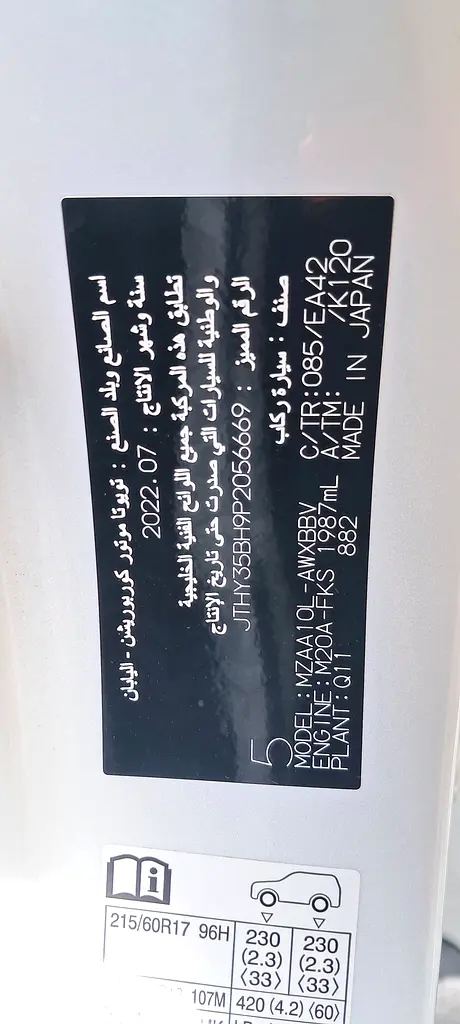 اسم الصانع وبلد الصنع : تويوتا موتور كوربوريشن - اليابان
سنة وشهر الانتاج : 2022.07
تطابق هذه المركبة جميع اللوائح الفنية الخليجية
والوطنية للسيارات التي صدرت حتى تاريخ الإنتاج
الرقم المميز : JTHY35BH9P2056669
صنف : سيارة ركاب
5
MODEL:MZAA10L-AWXBBV C/TR:085/EA42
ENGINE:M20A-FKS 1987mL A/TM: /K120
PLANT:Q11 882 MADE IN JAPAN
215/60R17 96H
230 (2.3) ⟨33⟩
230 (2.3) ⟨33⟩
107M 420 (4.2) ⟨60⟩